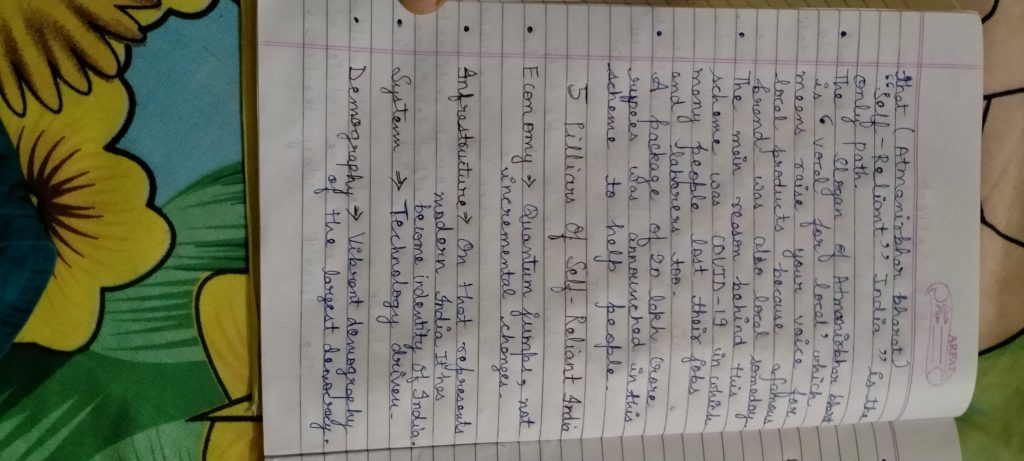 ARPAN
that (Atmanirbhar bharat)
"Self-Reliant" India" is the
only path.
• The slogan of Atmanirbhar bharat
is 'vocal for local' which
means raise your voice for
local products because
brand was also local someday.
• The main reason behind this
scheme was COVID-19 in which
many people lost their jobs
and labourers too.
• A package of 20 lakh crore
ruppees was announched in this
scheme to help people.
5 Pilliars Of Self-Reliant India
• Economy ⇒ Quantum jumps, not
incremental changes.
• Infrastructure ⇒ On that represents
modern India It has
become indentity of India.
• System ⇒ Technology driven
• Demography ⇒ Vibrent demography
of the largest democracy.